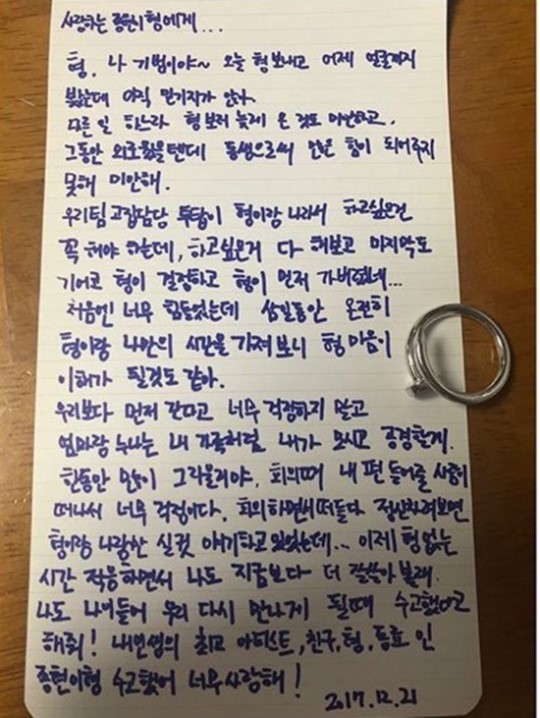 사랑하는 종현이형에게...
형. 나 기범이야~ 오늘 형 보내고 어제 얼굴까지
봤는데 아직 믿기지가 않아.
다른 일 하느라 형 보러 늦게 온 것도 미안하고,
그동안 외로웠을텐데 동생으로써 많은 힘이 되어주지
못해 미안해.
우리팀 고집담당 투탑이 형이랑 나라서 하고싶은건
꼭 해야 하는데, 하고싶은거 다 해보고 마지막도
기어코 형이 결정하고 형이 먼저 가버렸네...
처음엔 너무 힘들었는데 삼일동안 온전히
형이랑 나만의 시간을 가져보니 형 마음이
이해가 될것도 같아.
우리보다 먼저 간다고 너무 걱정하지 말고
엄마랑 누나는 내 가족처럼 내가 모시고 공경할게.
한동안 많이 그리울거야, 회의때 내 편 들어줄 사람이
떠나서 너무 걱정이다. 회의하면서 떠들다 정신차려보면
형이랑 나랑만 실컷 얘기하고 있었는데... 이제 형 없는
시간 적응하면서 나도 지금보다 더 잘살아 볼래.
나도 나이들어 우리 다시 만나게 될때 수고했다고
해줘! 내 인생의 최고 아티스트, 친구, 형, 동료 인
종현이형 수고했어 너무 사랑해!
2017.12.21